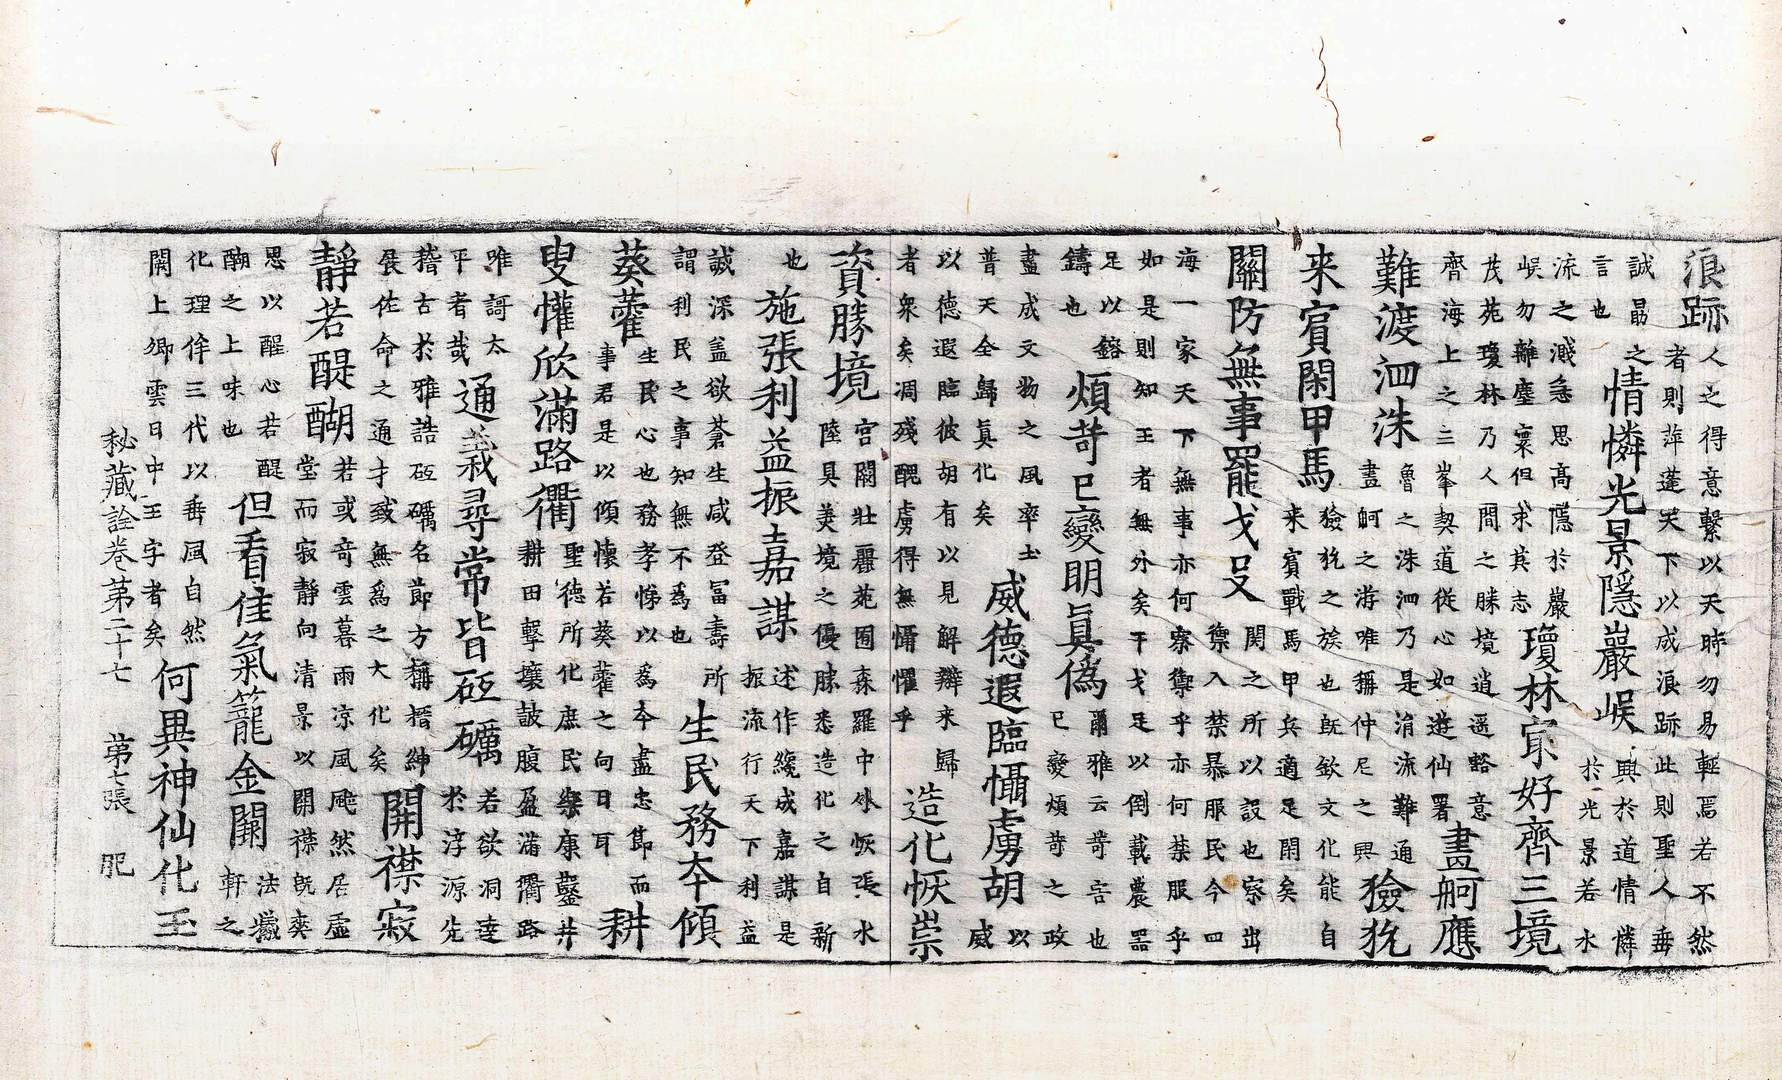 浪跡人之得意繋以天時勿易輕焉若不然
者則萍蓬哭下以成浪跡此則聖人垂
誠勗之
言也
情憐光景隱巖峴興於道情憐
於光景若水
流之濺㤂思高隱於巖
峴勿離塵寰但求其志
瓊林宴好齊三境
茂苑瓊林乃人間之勝境逍遥豁意
齊海上之三峯契道從心如遊仙署
畫舸應
難渡泗洙魯之洙泗乃是涓流難通
畫舸之游唯稱仲尼之興
獫狁
来賓閑甲馬獫狁之族也旣欽文化能自
来賓戰馬甲兵適足閑矣
關防無事罷戈殳関之所以設也察出
禦入禁暴服民今四
海一家天下無事亦何察禦乎亦何禁服乎
如是則知王者無外矣干戈足以倒載農器
足以鎔
鑄也
煩苛已變明眞僞爾雅云苛苦也
已變煩苛之政
盡成文物之風率土
普天全歸眞化矣
威德遐臨懾虜胡以
威
以德遐臨彼胡有以見解辮来歸
者衆矣凋殘醜虜得無懾懼乎
造化恢崇
資勝境宫闕壯麗苑囿森羅中外恢張水
陸具美境之優勝悉造化之自新
也
施張利益振嘉謀述作纔成嘉謀是
振流行天下利益
誠深盖欲蒼生咸登冨壽所
謂利民之事知無不爲也
生民務夲傾
葵藿生民心也務孝悌以爲夲盡忠節而
事君是以傾懷若葵藿之向日耳
耕
叟懽欣滿路衢聖德所化庶民樂康鑿井
耕田擊壤鼓腹盈滿衢路
唯謌太
平者哉
通義尋常皆砥礪若欲洞逹
於淳源先
稽古於雅誥砥礪名節方稱搢紳
展佐命之通才致無爲之大化矣
開襟寂
靜若醍醐若或奇雲暮雨凉風颷然居虚
堂而寂靜向清景以開襟旣爽
思以醒心若醍
醐之上味也
但看佳氣籠金闕法巍
軒之
化理侔三代以垂風自然
開上卿雲日中王字者矣
何異神仙化玉
秘藏詮卷第二十七　第七張　肥